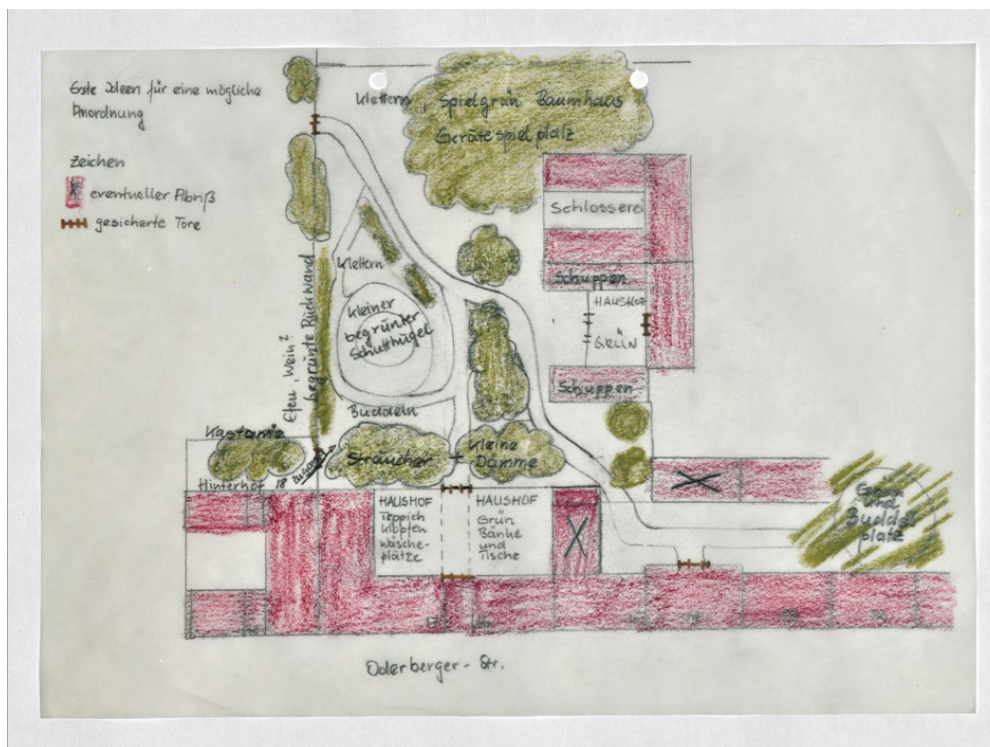 Erste Ideen für eine mögliche
Anordnung
Zeichen
eventueller Abriß
gesicherte Tore
Klettern, Spielgrün Baumhaus
Gerätespielplatz
Schlosserei
Schuppen
HAUSHOF
GRÜN
Schuppen
Klettern
kleiner
begrünter
Schutthügel
Efeu, Wein?
begrünte Rückwand
Buddeln
Kastanie
Sträucher +
kleine
Dämme
Hinterhof 18
zugang
HAUSHOF
Teppich
klopfen
Wäsche-
plätze
HAUSHOF
Grün
Bänke
und
Tische
Grün
und
Buddel
platz
Oderberger-Str.